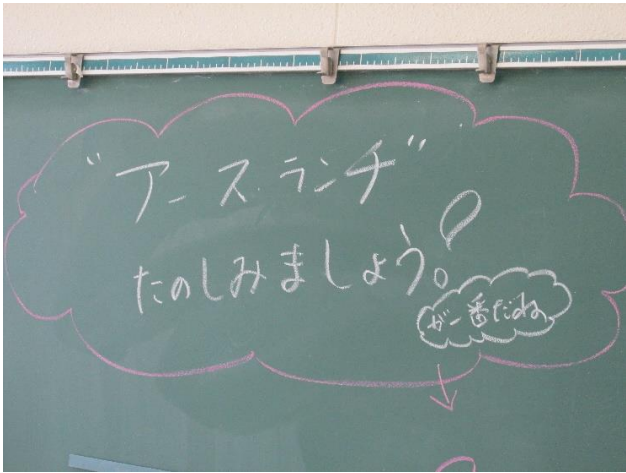 "アース.ランチ"
たのしみましょう!
が一番だね